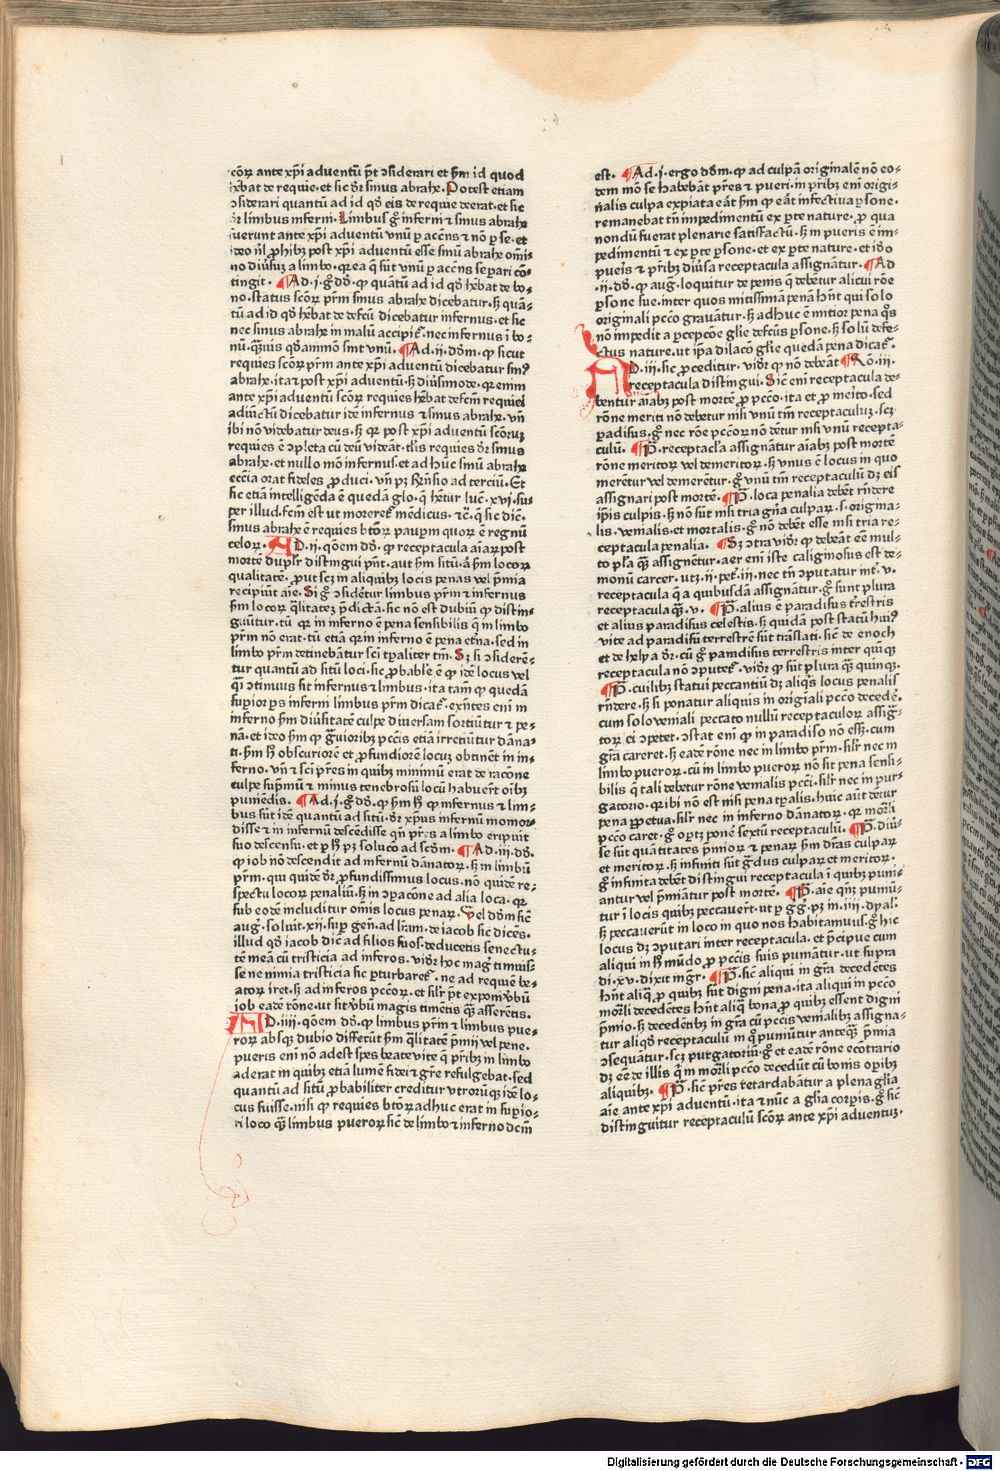 coꝝ ante xp̄i aduentū p̄t ɔsiderari et ẜm id quod
hēbat de requie· et sic dr̄ sinus abrahe· Potest etiam
ɔsiderari quantū ad id qđ eis de requie deerat· et sic
dr̄ limbus inferni· Limbus gͦ inferni ⁊ sinus abrahe
fuerunt ante xp̄i aduentū vnū ꝑ accn̄s ⁊ nō ꝑ se· et
ideo nͥl ꝓhibꝫ post xp̄i aduentū esse sinū abrahe om̄i-
no diūsuꝫ a limbo· qꝛ ea q̄ sūt vnū ꝑ accn̄s separi cō-
tingit· Ad ·j· gͦ dōm· ꝙ quātū ad id qđ hēbat de bo-
no· status scōꝝ pr̄m sinus abrahe dicebatur· sꝫ quā-
tū ad id qđ hēbat de defcū dicebatur infernus· et sic
nec sinus abrahe in malū accipit᷑· nec infernus ī bo-
nū· qͣꝫuis qđāmmō sint vnū· Ad ·ii· dōm· ꝙ sicut
requies scōꝝ pr̄m ante xp̄i aduentū dicebatur sinꝰ
abrahe· ita ⁊ post xp̄i aduentū· sꝫ diūsimode· qꝛ enim
ante xp̄i aduentū scōꝝ requies hēbat defcm̄ requiei
adiūctū dicebatur idē infernus ⁊ sinus abrahe· vn̄
ibi nō videbatur deus· sꝫ qꝛ post xp̄i aduentū scōꝝ
requies ē ɔpleta cū deū videāt· tl̓is requies dr̄ sinus
abrahe· et nullo mō infernus· et ad hūc sinū abrahe
ecc̄ia orat fideles ꝓduci· vn̄ pꝫ rn̄sio ad terciū· Et
sic etiā intelligēda ē quedā glo· q̄ hr̄tur luc̄· xvi· su-
per illud· fcm̄ est ut moreret᷑ mēdicus· ⁊c̄· q̄ sic dic̄·
sinus abrahe ē requies btōꝝ paupꝝ quoꝝ ē regnū
celoꝝ· AD ·ii· qōem dō· ꝙ receptacula aīaꝝ post
mortē dupl̓r distingui pn̄t· aut ẜm sitū· aut ẜm locoꝝ
qualitatē· ꝓut scꝫ in aliquibꝫ locis penas vel p̄mia
recipiūt aīe· Si gͦ ɔsidētur limbus pr̄m ⁊ infernus
ẜm locoꝝ q̄litatēꝫ p̄dictā· sic nō est dubiū ꝙ distin-
guūtur· tū qꝛ in inferno ē pena sensibilis q̄ in limbo
pr̄m nō erat· tū etiā qꝛ in inferno ē pena et̄na· sed in
limbo pr̄m detinebātur sci tꝑaliter tm̄· Sꝫ si ɔsiderē-
tur quantū ad sitū loci· sic ꝓbabl̓e ē ꝙ idē locus vel
qͣsi ɔtinuus sit infernus ⁊ limbus· ita tam̄ ꝙ quedā
supior ps inferni limbus pr̄m dicat᷑· exn̄tes eni in
inferno ẜm diūsitatē culpe diuersam sortiūtur ⁊ pe-
nā· et ideo ẜm ꝙ gͣuioribꝫ pctis etiā irretiūtur dāna-
ti· ẜm hͦ obscuriorē et ꝓfundiorē locū obtinēt in in-
ferno· vn̄ ⁊ sci pr̄es in quibꝫ minimū erat de racōne
culpe supmū ⁊ minus tenebrosū locū habuer̄t oībꝫ
puniēdis· Ad ·j· gͦ dō· ꝙ ẜm hͦ ꝙ infernus ⁊ lim-
bus sūt idē quantū ad sitū· dr̄ xp̄us infernū momor-
disse ⁊ in infernū descēdisse qn̄ pr̄es a limbo eripuit
suo descensu· et ꝑ hͦ pꝫ soluco ad scđm· Ad ·iii· dō·
ꝙ iob nō descendit ad infernū dānatoꝝ· sꝫ in limbū
pr̄m· qui quidē dr̄ ꝓfundissimus locus· nō quidē re-
spectu locoꝝ penaliū· sꝫ in ɔpacōne ad alia loca· qꝛ
sub eodē includitur om̄is locus penaꝝ· Vel dōm sic̄
aug· soluit· xii· sup gen̄· ad lr̄am· de iacob sic dicēs·
illud qđ iacob dic̄ ad filios suos· deducetis senectu-
tē meā cū tristicia ad inferos· vider̄ hoc magͥ timuis-
se ne nimia tristicia sic ꝑturbaret᷑· ne ad requiē be-
atoꝝ iret· sꝫ ad inferos pctōꝝ· et sil̓r p̄t exponi v̄bū
iob eadē rōne· ut sit v̄bū magis timētis qͣꝫ asserētis·
AD ·iiii· qōem dō· ꝙ limbus pr̄m ⁊ limbus pue-
roꝝ absqꝫ dubio differūt ẜm q̄litatē p̄mij vel pene·
pueris eni nō adest spes beate vite q̄ pr̄ibꝫ in limbo
aderat in quibꝫ etiā lumē fidei ⁊ gr̄e refulgebat· sed
quantū ad sitū ꝓbabiliter creditur vtroꝝqꝫ idē lo-
cus fuisse· nisi ꝙ requies btōꝝ adhuc erat in supio-
ri loco qͣꝫ limbus pueroꝝ· sic̄ de limbo ⁊ inferno dcm̄
est· Ad ·j· ergo dōm· ꝙ ad culpā originalē nō eo-
dem mō se habebāt pr̄es ⁊ pueri· in pr̄ibꝫ eni origi-
nalis culpa expiata eāt ẜm ꝙ eāt infectiua ꝑsone·
remanebat tn̄ impedimentū ex ꝑte nature· ꝓ qua
nondū fuerat plenarie satisfactū· sꝫ in pueris ē im-
pedimentū ⁊ ex ꝑte ꝑsone· et ex ꝑte nature· et ideo
pueis ⁊ pr̄ibꝫ diūsa receptacula assignātur· Ad
·ii· dō· ꝙ aug· loquitur de penis q̄ debētur alicui rōe
ꝑsone sue· inter quos mitissimā penā hn̄t qui solo
originali pctō grauātur· sꝫ adhuc ē mitior pena qͦs
nō impedit a ꝑcepcōe gl̓ie defcūs ꝑsone· sꝫ solū defe-
ctus nature· ut ip̄a dilacō gl̓ie quedā pena dicat᷑·
AD ·iii· sic ꝓceditur· vider̄ ꝙ nō debeāt Rō· iii·
receptacula distingui· Sic̄ eni receptacula de-
bentur aīabꝫ post mortē ꝓ pctō· ita et ꝓ meito· sed
rōne meriti nō debetur nisi vnū tm̄ receptaculuꝫ· scꝫ
paradisus· gͦ nec rōe pctōꝝ nō dētur nisi vnū recepta-
culū· P̄· receptacl̓a assignātur aīabꝫ post mortē
rōne meritoꝝ vel demeritoꝝ· sꝫ vnus ē locus in quo
merētur vel demerētur· gͦ vnū tm̄ receptaculū dꝫ eis
assignari post mortē· P̄· loca penalia debēt rn̄dere
ip̄is culpis· sꝫ nō sūt nisi tria gn̄a culpaꝝ· s· origina-
lis· venialis· et mortalis· gͦ nō debēt esse nisi tria re-
ceptacula penalia· Sꝫ ɔtra vider̄ ꝙ debeāt eē mul-
to pl̓a q̄ assignētur· aer eni iste caliginosus est de-
monū carcer· utꝫ ·ii· pet̄· iii· nec tn̄ ɔputatur int̄· v·
receptacula q̄ a quibusdā assignātur· gͦ sunt plura
receptacula qͣꝫ· v· P̄· alius ē paradisus tr̄estris
et alius paradisus celestis· sꝫ quidā post statū huiꝰ
vite ad paradisū terrestrē sūt trāslati· sic̄ de enoch
et de helya dr̄· cū gͦ paradisus terrestris inter quiqꝫ
receptacula nō ɔputet᷑· vider̄ ꝙ sūt plura qͣꝫ quinqꝫ·
P̄· cuilibꝫ statui peccantiū dꝫ aliqͦs locus penalis
rn̄dere· sꝫ si ponatur aliquis in origiali pctō decedēs
cum solo veniali peccato nullū receptaculoꝝ assigͣ-
toꝝ ei ɔpetet· ɔstat eni ꝙ in paradiso nō essꝫ· cum
gr̄a careret· sꝫ eadē rōne nec in limbo pr̄m· sil̓r nec in
limbo pueroꝝ· cū in limbo pueroꝝ nō sit pena sensi-
bilis q̄ tali debetur rōne venialis pcti· sil̓r nec in pur-
gatorio· qꝛ ibi nō est nisi pena tꝑalis· huic aūt dētur
pena ꝑpetua· sil̓r nec in inferno dānatoꝝ· qꝛ mōl̓i
pctō caret· gͦ oꝑtꝫ ponē sextū receptaculū· P̄· diū-
se sūt quātitates p̄mioꝝ ⁊ penaꝝ ẜm dr̄as culpaꝝ
et meritoꝝ· sꝫ infiniti sūt gͣdus culpaꝝ et meritoꝝ·
gͦ infinita debēt distingui receptacula ī quibꝫ puni-
antur vel p̄miātur post mortē· P̄· aīe qn̄qꝫ puniū-
tur ī locis quibꝫ peccauer̄t· ut ꝑ gͥg· pꝫ in· iiii· dyal̓·
sꝫ peccauerūt in loco in quo nos habitamus· gͦ hic
locus dꝫ ɔputari inter receptacula· et p̄cipue cum
aliqui in hͦ mūdo ꝓ pctis suis puniātur· ut supra
di· xv· dixit mgr̄· P̄· sic̄ aliqui in gr̄a decedētes
hn̄t aliqͣ ꝓ quibꝫ sūt digni pena· ita aliqui in pctō
mōl̓i decedētes hn̄t aliqͣ bona ꝓ quibꝫ essent digni
p̄mio· sꝫ decedētibꝫ in gr̄a cū pctis venialibꝫ assigna-
tur aliqđ receptaculū in qͦ puniūtur anteqͣꝫ p̄mia
ɔsequātur· scꝫ purgatoriū· gͦ et eadē rōne ecōtrario
dꝫ eē de illis qͥ in mōl̓i pctō decedūt cū bonis oꝑibꝫ
aliquibꝫ· P̄· sic̄ pr̄es retardabātur a plena gl̓ia
aīe ante xp̄i aduentū· ita ⁊ nūc a gl̓ia corꝑis· gͦ sic̄
distinguitur receptaculū scōꝝ ante xp̄i aduentuꝫ·
Digitalisierung gefördert durch die Deutsche Forschungsgemeinschaft - DFG